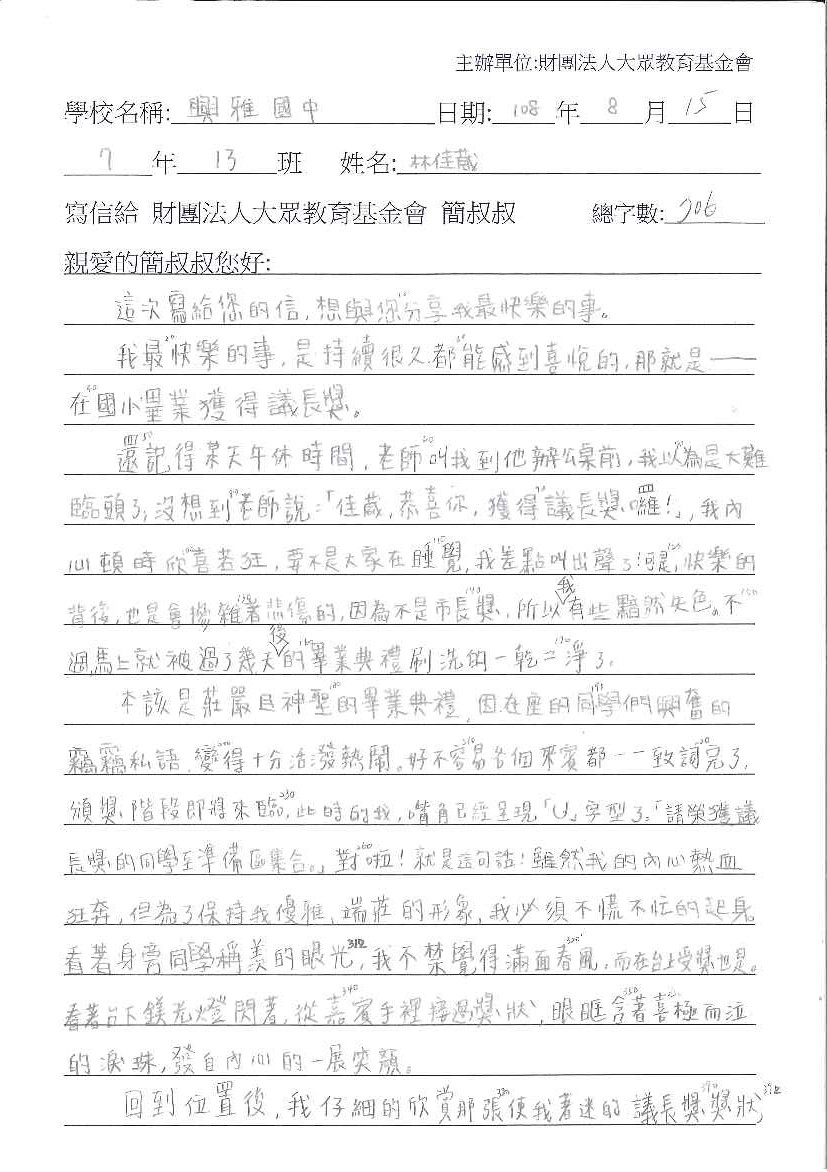 主辦單位:財團法人大眾教育基金會
學校名稱: 興雅國中 日期: 108 年 8 月 15 日
7 年 13 班 姓名: 林佳葳
寫信給 財團法人大眾教育基金會 簡叔叔 總字數: 706
親愛的簡叔叔您好:
這次寫給您的信,想與您分享我最快樂的事。
我最快樂的事,是持續很久都能感到喜悅的,那就是——
在國小畢業獲得議長獎。
還記得某天午休時間,老師叫我到他辦公桌前,我以為是大難
臨頭了,沒想到老師說:「佳葳,恭喜你,獲得議長獎囉!」,我內
心頓時欣喜若狂,要不是大家在睡覺,我差點叫出聲了!可是,快樂的
背後,也是會摻雜著悲傷的,因為不是市長獎,所以我有些黯然失色。不
過,馬上就被過了幾天後的畢業典禮刷洗的一乾二淨了。
本該是莊嚴且神聖的畢業典禮,因在座的同學們興奮的
竊竊私語,變得十分活潑熱鬧。好不容易各個來賓都一一致詞完了,
頒獎階段即將來臨,此時的我,嘴角已經呈現「U」字型了。「請榮獲議
長獎的同學至準備區集合。」對啦!就是這句話!雖然我的內心熱血
狂奔,但為了保持我優雅、端莊的形象,我必須不慌不忙的起身。
看著身旁同學稱羨的眼光,我不禁覺得滿面春風,而在台上受獎也是。
看著台下鎂光燈閃著,從嘉賓手裡接過獎狀,眼眶含著喜極而泣
的淚珠,發自內心的一展笑顏。
回到位置後,我仔細的欣賞那張使我著迷的議長獎獎狀